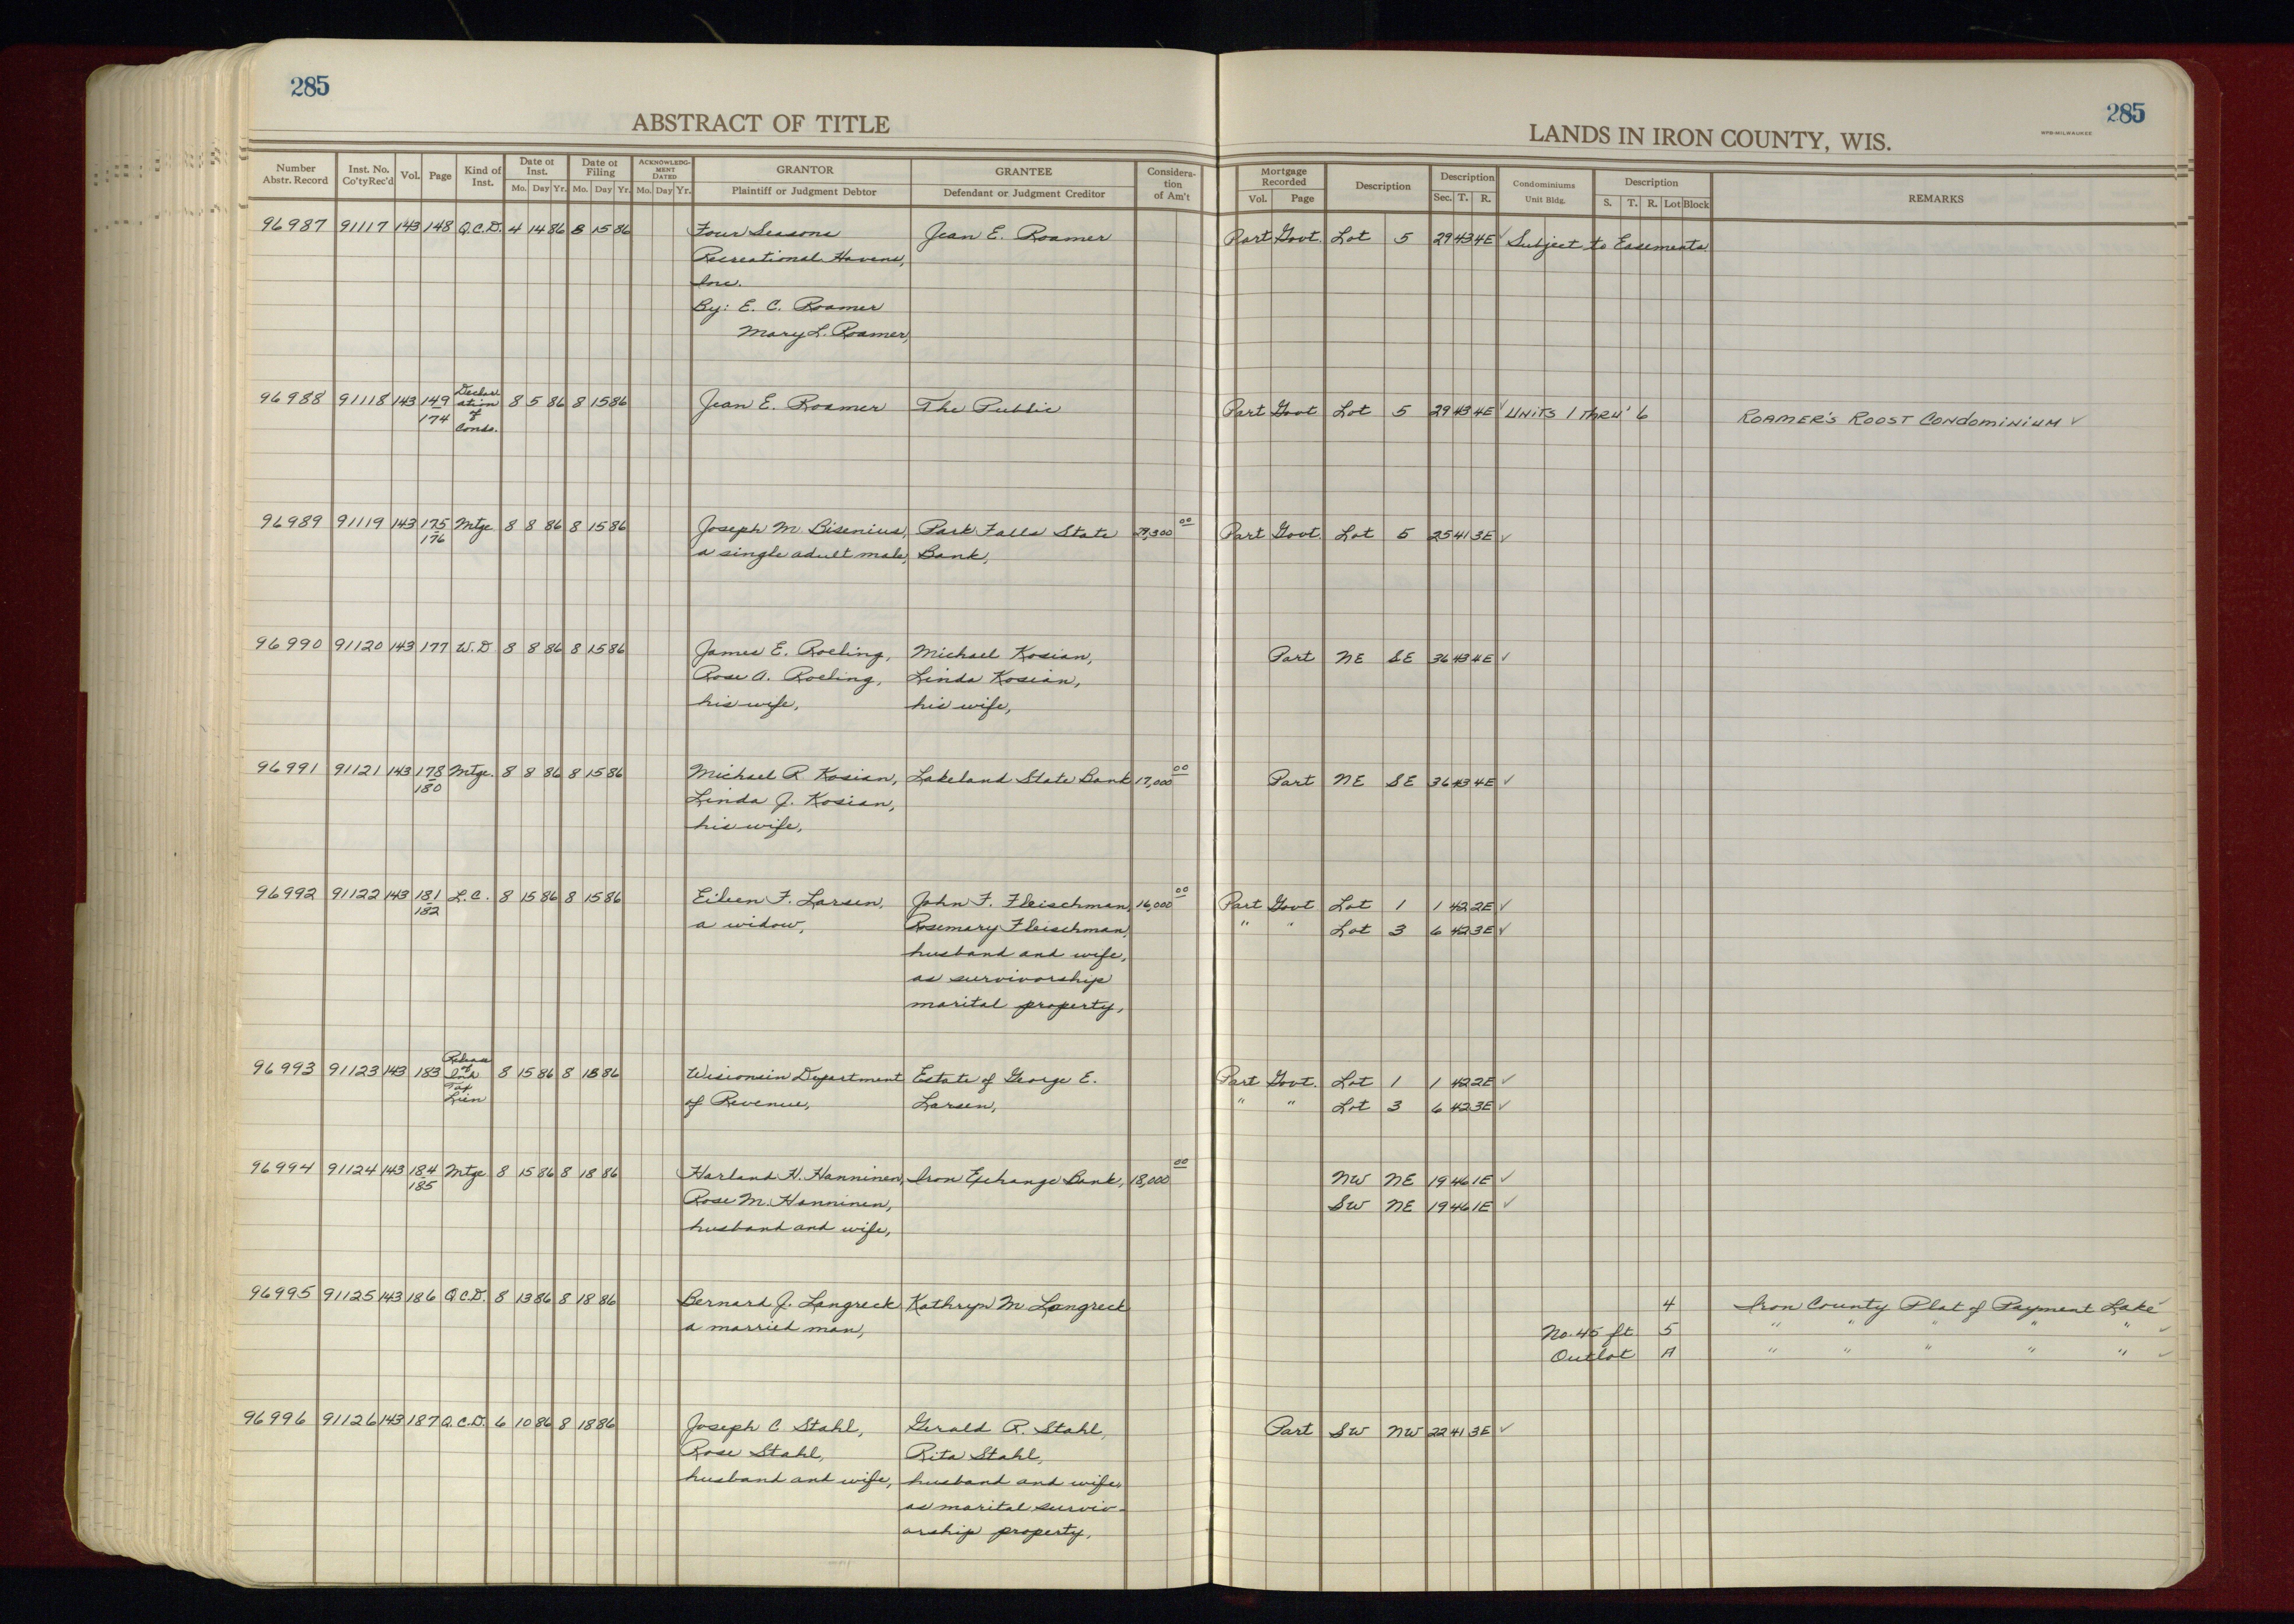 285
ABSTRACT OF TITLE
Number Abstr. Record | Inst. No. Co'ty Rec'd | Vol. | Page | Kind of Inst. | Date of Inst. Mo. Day Yr. | Date of Filing Mo. Day Yr. | ACKNOWLEDGMENT DATED Mo. Day Yr. | GRANTOR Plaintiff or Judgment Debtor | GRANTEE Defendant or Judgment Creditor | Consideration of Am't
285
LANDS IN IRON COUNTY, WIS.
WPB-MILWAUKEE
Mortgage Recorded Vol. Page | Description | Description Sec. T. R. | Condominiums Unit Bldg. | Description S. T. R. Lot Block | REMARKS
96987 91117 143 148 Q.C.D. 4 14 86 8 15 86 Four Seasons Jean E. Roamer Part Govt. Lot 5 29 43 4E ✓ Subject to Easements
Recreational Havens,
Inc.
By: E. C. Roamer
Mary L. Roamer,
96988 91118 143 149 174 Declaration of Condo. 8 5 86 8 15 86 Jean E. Roamer The Public Part Govt Lot 5 29 43 4E ✓ UNITS 1 THRU' 6 ROAMER'S ROOST CONDOMINIUM ✓
96989 91119 143 175 176 Mtge 8 8 86 8 15 86 Joseph M Bisenius, Park Falls State 29,300 00 Part Govt. Lot 5 25 41 3E ✓
a single adult male, Bank,
96990 91120 143 177 W.D 8 8 86 8 15 86 James E. Roeling, Michael Kosian, Part NE SE 36 43 4E ✓
Rose A. Roeling, Linda Kosian,
his wife, his wife,
96991 91121 143 178 180 Mtge. 8 8 86 8 15 86 Michael R Kosian, Lakeland State Bank 17,000 00 Part NE SE 36 43 4E ✓
Linda J. Kosian,
his wife,
96992 91122 143 181 182 L.C. 8 15 86 8 15 86 Eileen F. Larsen, John F. Fleischman, 16,000 00 Part Govt Lot 1 1 42 2E ✓
a widow, Rosemary Fleischman, " " Lot 3 6 42 3E ✓
husband and wife,
as survivorship
marital property,
96993 91123 143 183 Release of Inh Tax Lien 8 15 86 8 18 86 Wisconsin Department Estate of George E. Part Govt. Lot 1 1 42 2E ✓
of Revenue, Larsen, " " Lot 3 6 42 3E ✓
96994 91124 143 184 185 Mtge 8 15 86 8 18 86 Harland H. Hanninen, Iron Exchange Bank, 18,000 00 NW NE 19 46 1E ✓
Rose M. Hanninen, SW NE 19 46 1E ✓
husband and wife,
96995 91125 143 186 Q.C.D. 8 13 86 8 18 86 Bernard J. Langreck Kathryn M Langreck 4 Iron County Plat of Payment Lake ✓
a married man, No. 45 ft. 5 " " " " " ✓
Outlot A " " " " " ✓
96996 91126 143 187 Q.C.D. 6 10 86 8 18 86 Joseph C Stahl, Gerald R. Stahl, Part SW NW 22 41 3E ✓
Rose Stahl, Rita Stahl,
husband and wife, husband and wife,
as marital surviv-
orship property,